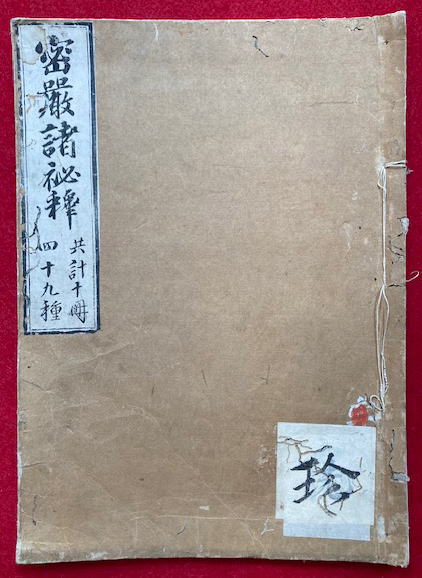 密嚴諸祕釋
共計十冊
四十九種
珍